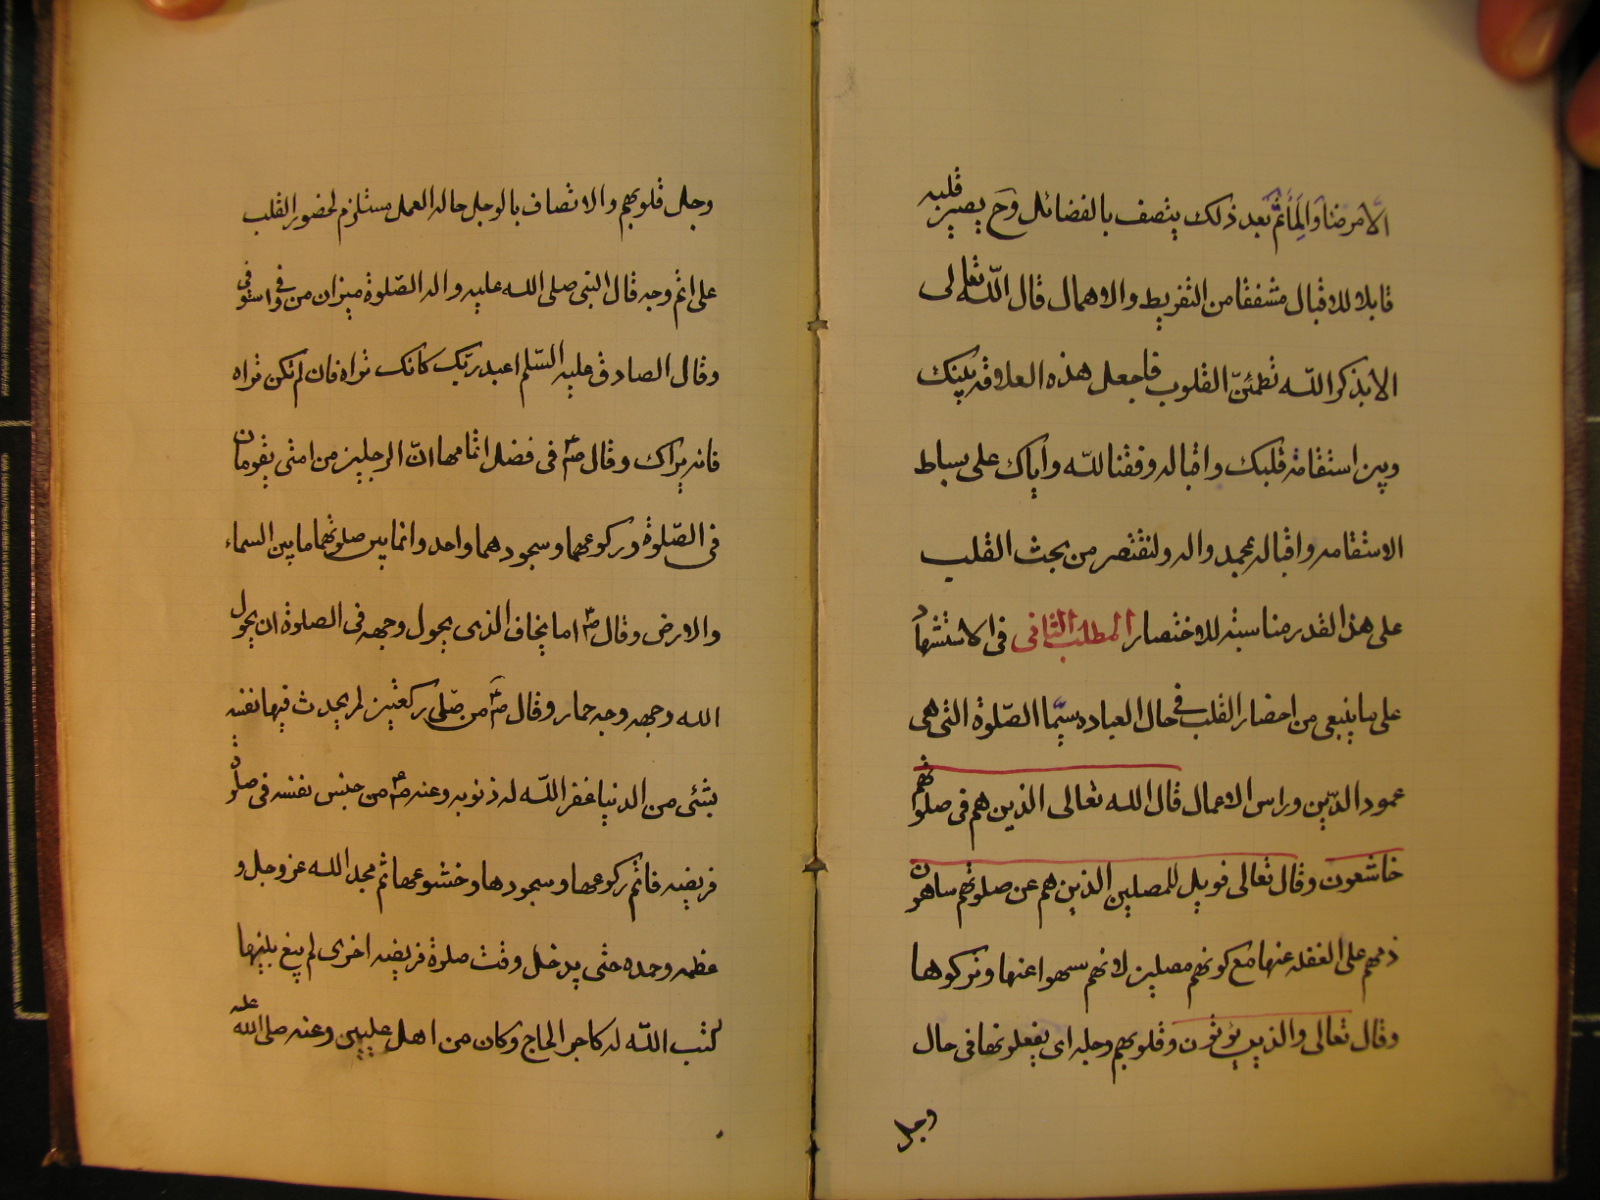 الامرضا والمأثم بعد ذلك يتصف بالفضائل وح يصير قلبه
قابلا للاقبال مشفقا من التفريط والاهمال قال الله تعالى
الا بذكر الله تطمئن القلوب فاجعل هذه العلاقة بينك
وبين استقامة قلبك واقباله وفقنا لله واياك على بساط
الاستقامه واقباله بمحمد واله ولنقتصر من بحث القلب
على هذا القدر مناسبة للاختصار المطلب الثانى فى الاستشهاد
على ما ينبغى من احضار القلب فى حال العباده سيما الصلوة التى هى
عمود الدين وراس الاعمال قال الله تعالى الذين هم فى صلوتهم
خاشعون وقال تعالى فويل للمصلين الذين هم عن صلوتهم ساهون
ذمهم على الغفله عنها مع كونهم مصلين لانهم سهوا عنها وتركوها
وقال تعالى والذين يؤتون وقلوبهم وجله اى يفعلونها فى حال
وجل
وجل قلوبهم والاتصاف بالوجل حاله العمل مستلزم لحضور القلب
على اتم وجه قال النبى صلى الله عليه واله الصلوة ميزان من وفى استوفى
وقال الصادق عليه السلم اعبد ربك كانك تراه فان لم تكن تراه
فانه يراك وقال ص فى فضل اتمامها ان الرجلين من امتى يقومان
فى الصلوة وركوعهما وسجودهما واحد وانما بين صلوتهما ما بين السماء
والارض وقال ص اما يخاف الذى يحول وجهه فى الصلوة ان يحول
الله وجهه وجه حمار وقال ص من صلى ركعتين لم يحدث فيها نفسه
بشئى من الدنيا غفر الله له ذنوبه وعنه ص من حبس نفسه فى صلوة
فريضه فاتم ركوعها وسجودها وخشوعها ثم مجد الله عز وجل و
عظمه وحمده حتى يدخل وقت صلوة فريضه اخرى لم يبغ بينها
كتب الله له كاجر الحاج وكان من اهل عليين وعنه صلى الله عليه